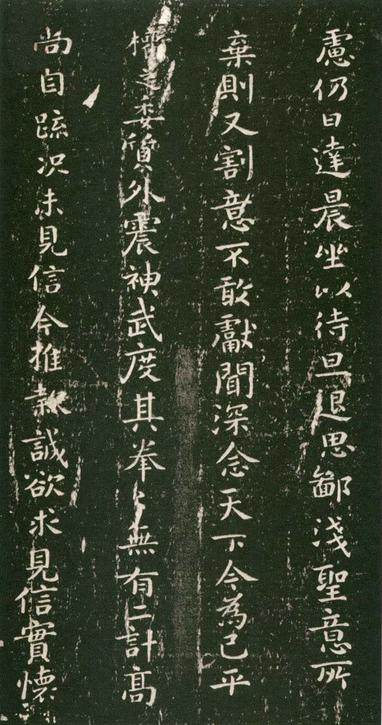 慮仍日達晨坐以待旦退思鄙淺聖意所
棄則又割意不敢獻聞深念天下今為已平
權之委質外震神武度其拳〻無有二計高
尚自疏况未見信今推款誠欲求見信實懷